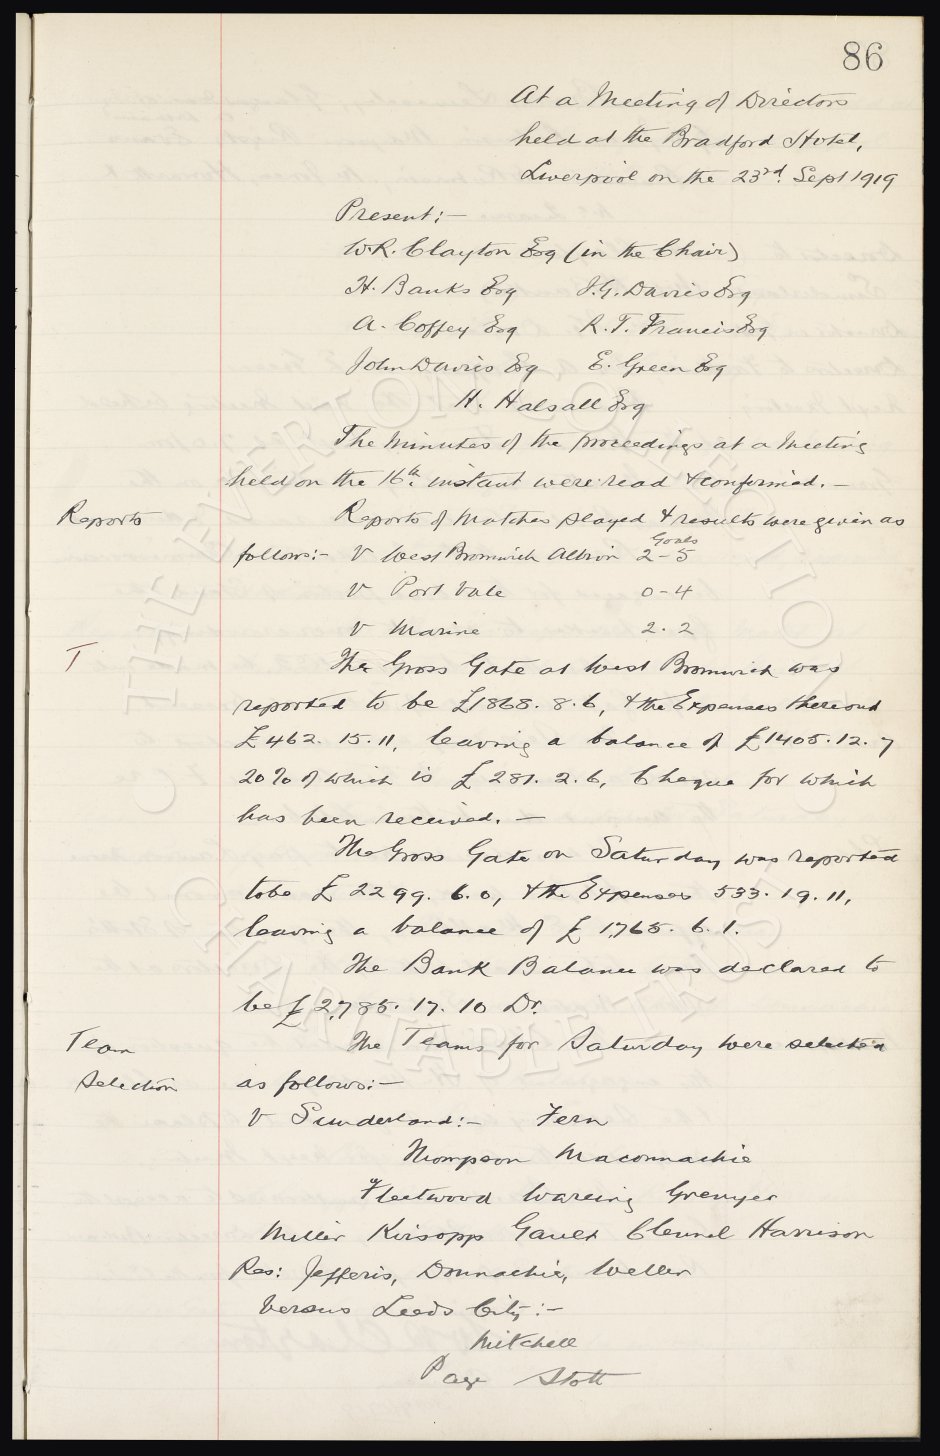 86
At a Meeting of Directors
held at the Bradford Hotel,
Liverpool on the 23rd. Sept 1919
Present:-
W.R. Clayton Esq (in the Chair)
H. Banks Esq J.G. Davies Esq
A. Coffey Esq R.T. Francis Esq
John Davies Esq E. Green Esq
H. Halsall Esq
The Minutes of the proceedings at a Meeting
held on the 16th. instant were read & confirmed. -
Reports Reports of Matches played & results were given as
Goals
follows:- V West Bromwich Albion 2-5
V Port Vale 0-4
V Marine 2.2
T The Gross Gate at West Bromwich was
reported to be £1868. 8. 6, & the Expenses thereout
£462. 15. 11, leaving a balance of £1405. 12. 7
20% of which is £281. 2. 6, Cheque for which
has been received. -
The Gross Gate on Saturday was reported
to be £2299. 6. 0, & the Expenses 533. 19. 11,
leaving a balance of £1,765. 6. 1.
The Bank Balance was declared to
be £2,785. 17. 10 Dr.
Team The Teams for Saturday were selected
Selection as follows:-
V Sunderland:- Fern
Thompson Maconnachie
Fleetwood Wareing Grenyer
Miller Kirsopp Gault Clennel Harrison
Res: Jefferis, Donnachie, Weller
Versus Leeds City:-
Mitchell
Page Stott
THE EVERTON COLLECTION